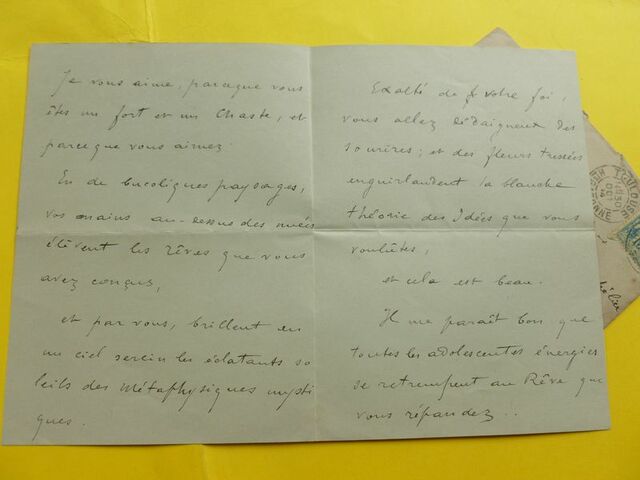 Je vous aime, parceque vous
êtes un fort et un Chaste, et
parceque vous aimez.
En de bucoliques paysages,
vos mains au-dessus des nuées
élèvent les Rêves que vous
avez conçus,
et par vous, brillent en
un ciel serein les éclatants so
leils des Métaphysiques mysti
ques.
Exalté de votre foi,
vous allez dédaigneux des
sourires; et des fleurs tressées
enguirlandent la blanche
théorie des Idées que vous
voulûtes,
et cela est beau.
Il me paraît bon que
toutes les adolescentes énergies
se retrempent au Rêve que
vous répandez..
TOULOUSE